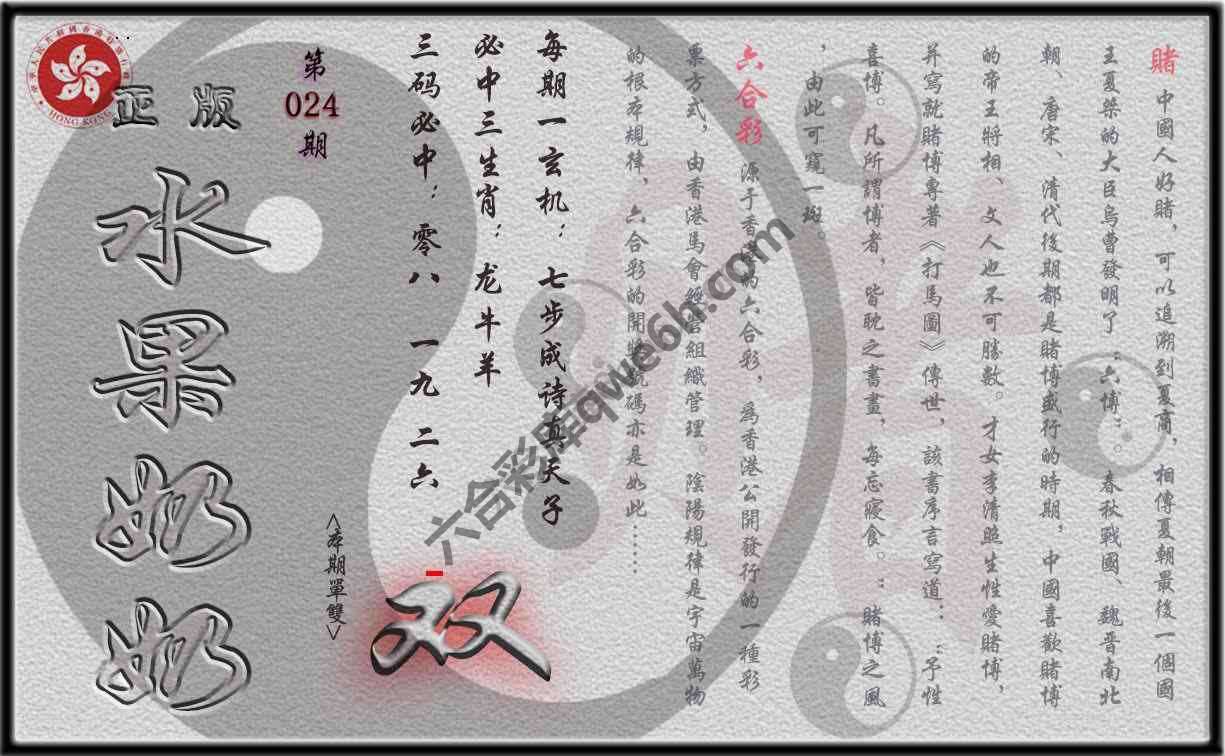 賭 中國人好賭，可以追溯到夏商，相傳夏朝最後一個國
王夏桀的大臣烏曹發明了：六博：。春秋戰國、魏晋南北
朝、唐宋、清代後期都是賭博盛行的時期，中國喜歡賭博
的帝王將相、文人也不可勝數。才女李清照生性愛賭博，
并寫就賭博專著《打馬圖》傳世，該書序言寫道：：予性
喜博。凡所謂博者，皆耽之書畫，每忘寢食。：賭博之風
，由此可窺一斑。
六合彩 源于香港的六合彩，為香港公開發行的一種彩
票方式，由香港馬會經營組織管理。陰陽規律是宇宙萬物
的根本規律、六合彩的開獎號碼亦是如此……
每期一玄机：七步成诗真天子
必中三生肖：龙牛羊
三码必中：零八 一九 二六
<本期單雙>
双
第
024
期
正版
水果奶奶
HONG KONG
六合彩庫qwe6h.com